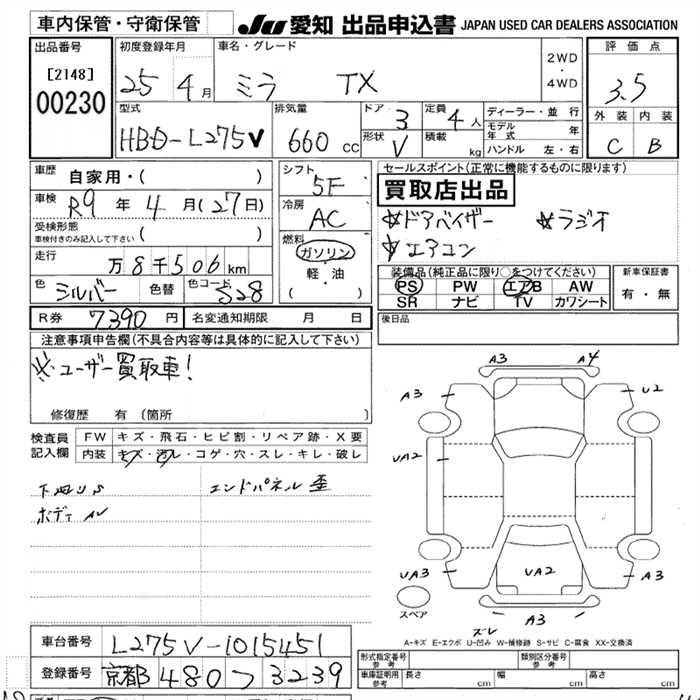 車内保管・守衛保管
JU 愛知 出品申込書 JAPAN USED CAR DEALERS ASSOCIATION
出品番号
[2148]
00230
初度登録年月
25 4月
車名・グレード
ミラ TX
2WD
・
4WD
評価点
3.5
外装 内装
C B
型式
HBD-L275V
排気量
660 cc
ドア 3
形状 V
定員 4人
積載 kg
ディーラー・並行
モデル年式 年
ハンドル 左・右
車歴 自家用・( )
車検 R9年4月(27日)
受検形態
車検付きのみ記入して下さい ( )
走行 万8千506km
色 シルバー 色替 色コード S28
シフト
5F
冷房
AC
燃料
ガソリン
軽・油
( )
セールスポイント(正常に機能するものに限ります)
買取店出品
☆ドアバイザー ☆ラジオ
☆エアコン
装備品(純正品に限り○をつけてください)
PS PW エアB AW
SR ナビ TV カワシート
新車保証書
有・無
R券 7390円 名変通知期限 月 日
後日品
注意事項申告欄(不具合内容等は具体的に記入して下さい)
※ユーザー買取車!
修復歴 有 (箇所 )
検査員
記入欄
FW キズ・飛石・ヒビ割・リペア跡・X要
内装 キズ・汚レ・コゲ・穴・スレ・キレ・破レ
下廻りS エンドパネル歪
ボディAU
A3 A4
A3 U2
UA2
UA3 UA2 A3
A3
スペア
ズレ
A-キズ E-エクボ U-凹み W-補修跡 S-サビ C-腐食 XX-交換済
車台番号 L275V-1015451
登録番号 京都 480 つ 3239
形式指定番号
参考
類別区分番号
参考
車庫証明用
参考
長さ cm 幅 cm 高さ cm